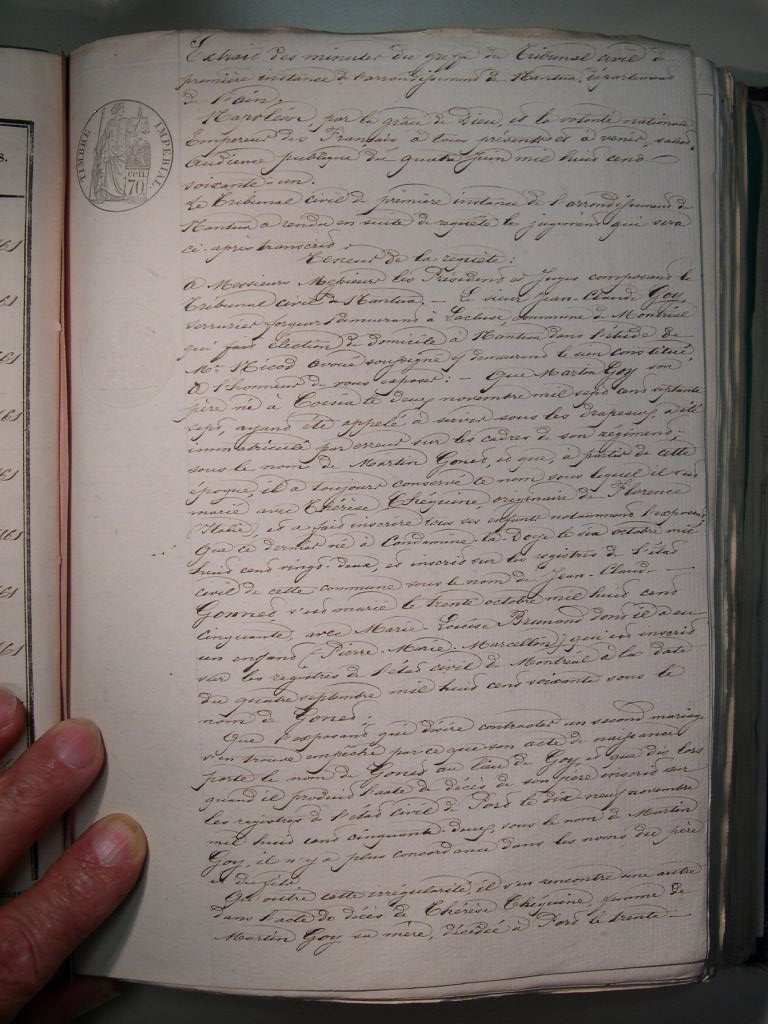 TIMBRE IMPÉRIAL
70
Extrait des minutes du greffe du Tribunal civil de
première instance de l'arrondissement de Nantua, département
de l'Ain,
Napoléon, par la grâce de Dieu, et la volonté nationale
Empereur des Français à tous présents et à venir, salut.
Audience publique du quatre juin mil huit cent
soixante-un.
Le Tribunal civil de première instance de l'arrondissement de
Nantua a rendu en suite de requête le jugement qui sera
ci-après transcrit.
Teneur de la requête :
A Messieurs Messieurs les Présidents et Juges composant le
Tribunal civil de Nantua. — Le sieur Jean-Claude Goy,
serrurier forgeur demeurant à Lacluse, commune de Montréal
qui fait élection de domicile à Nantua dans l'étude de
Me Nicod avoué soussigné y demeurant le sien constitué,
A l'honneur de vous exposer : — Que Martin Goy son
père né à Coisia le deux novembre mil sept cent septante
sept, ayant été appelé à servir sous les drapeaux, a été
immatriculé par erreur sur les cadres de son régiment,
sous le nom de Martin Gones, et que, à partir de cette
époque, il a toujours conservé le nom sous lequel il s'est
marié avec Thérèse Chéquine, originaire de Florence
(Italie), et a fait inscrire tous ses enfants notamment l'exposant,
Que ce dernier né à Condamine-la-Doye le six octobre mil
huit cent vingt-deux, est inscrit sur les registres de l'état
civil de cette commune sous le nom de Jean-Claude —
Gonnes s'est marié le trente octobre mil huit cent
cinquante, avec Marie-Louise Brunond dont il a eu
un enfant (Pierre-Marie-Marcellin) qui est inscrit
sur les registres de l'état civil de Montréal à la date
du quatre septembre mil huit cent soixante sous le
nom de Gones ;
Que l'exposant qui désire contracter un second mariage
s'en trouve empêché parce que son acte de naissance
porte le nom de Gones au lieu de Goy, et que dès lors
quand il produit l'acte de décès de son père inscrit sur
les registres de l'état civil de Port le dix neuf novembre
mil huit cent cinquante-deux, sous le nom de Martin
Goy, il n'y a plus concordance dans les noms du père
et du fils.
Qu'outre cette irrégularité, il s'en rencontre une autre
dans l'acte de décès de Thérèse Chéquine, femme de
Martin Goy sa mère, décédée à Port le trente —